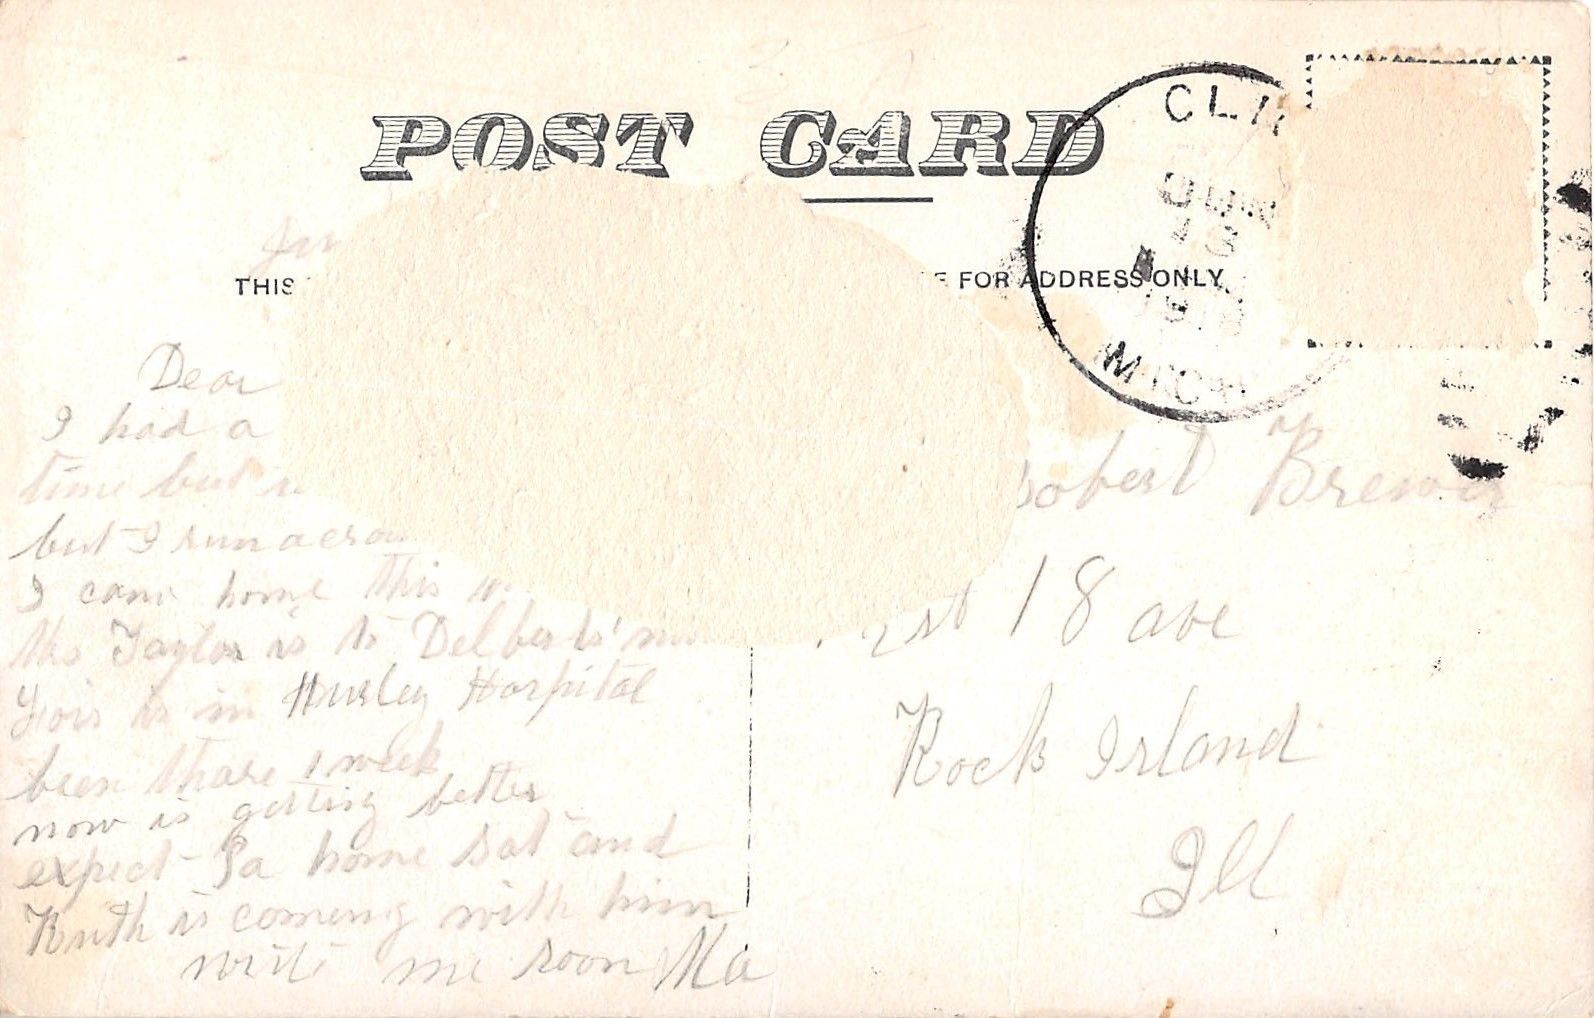 POST CARD
THIS
FOR ADDRESS ONLY
CLI
JUN
13
MICH
Dear
I had a
time but
but I run acros
I came home this
Mrs Taylor is to Delberts'
Lois is in Hurley Hospital
been thare 1 week
now is getting better
expect Pa home Sat and
Ruth is coming with him
write me soon Ma
obert Brewer
st 18 ave
Rock Island
Ill